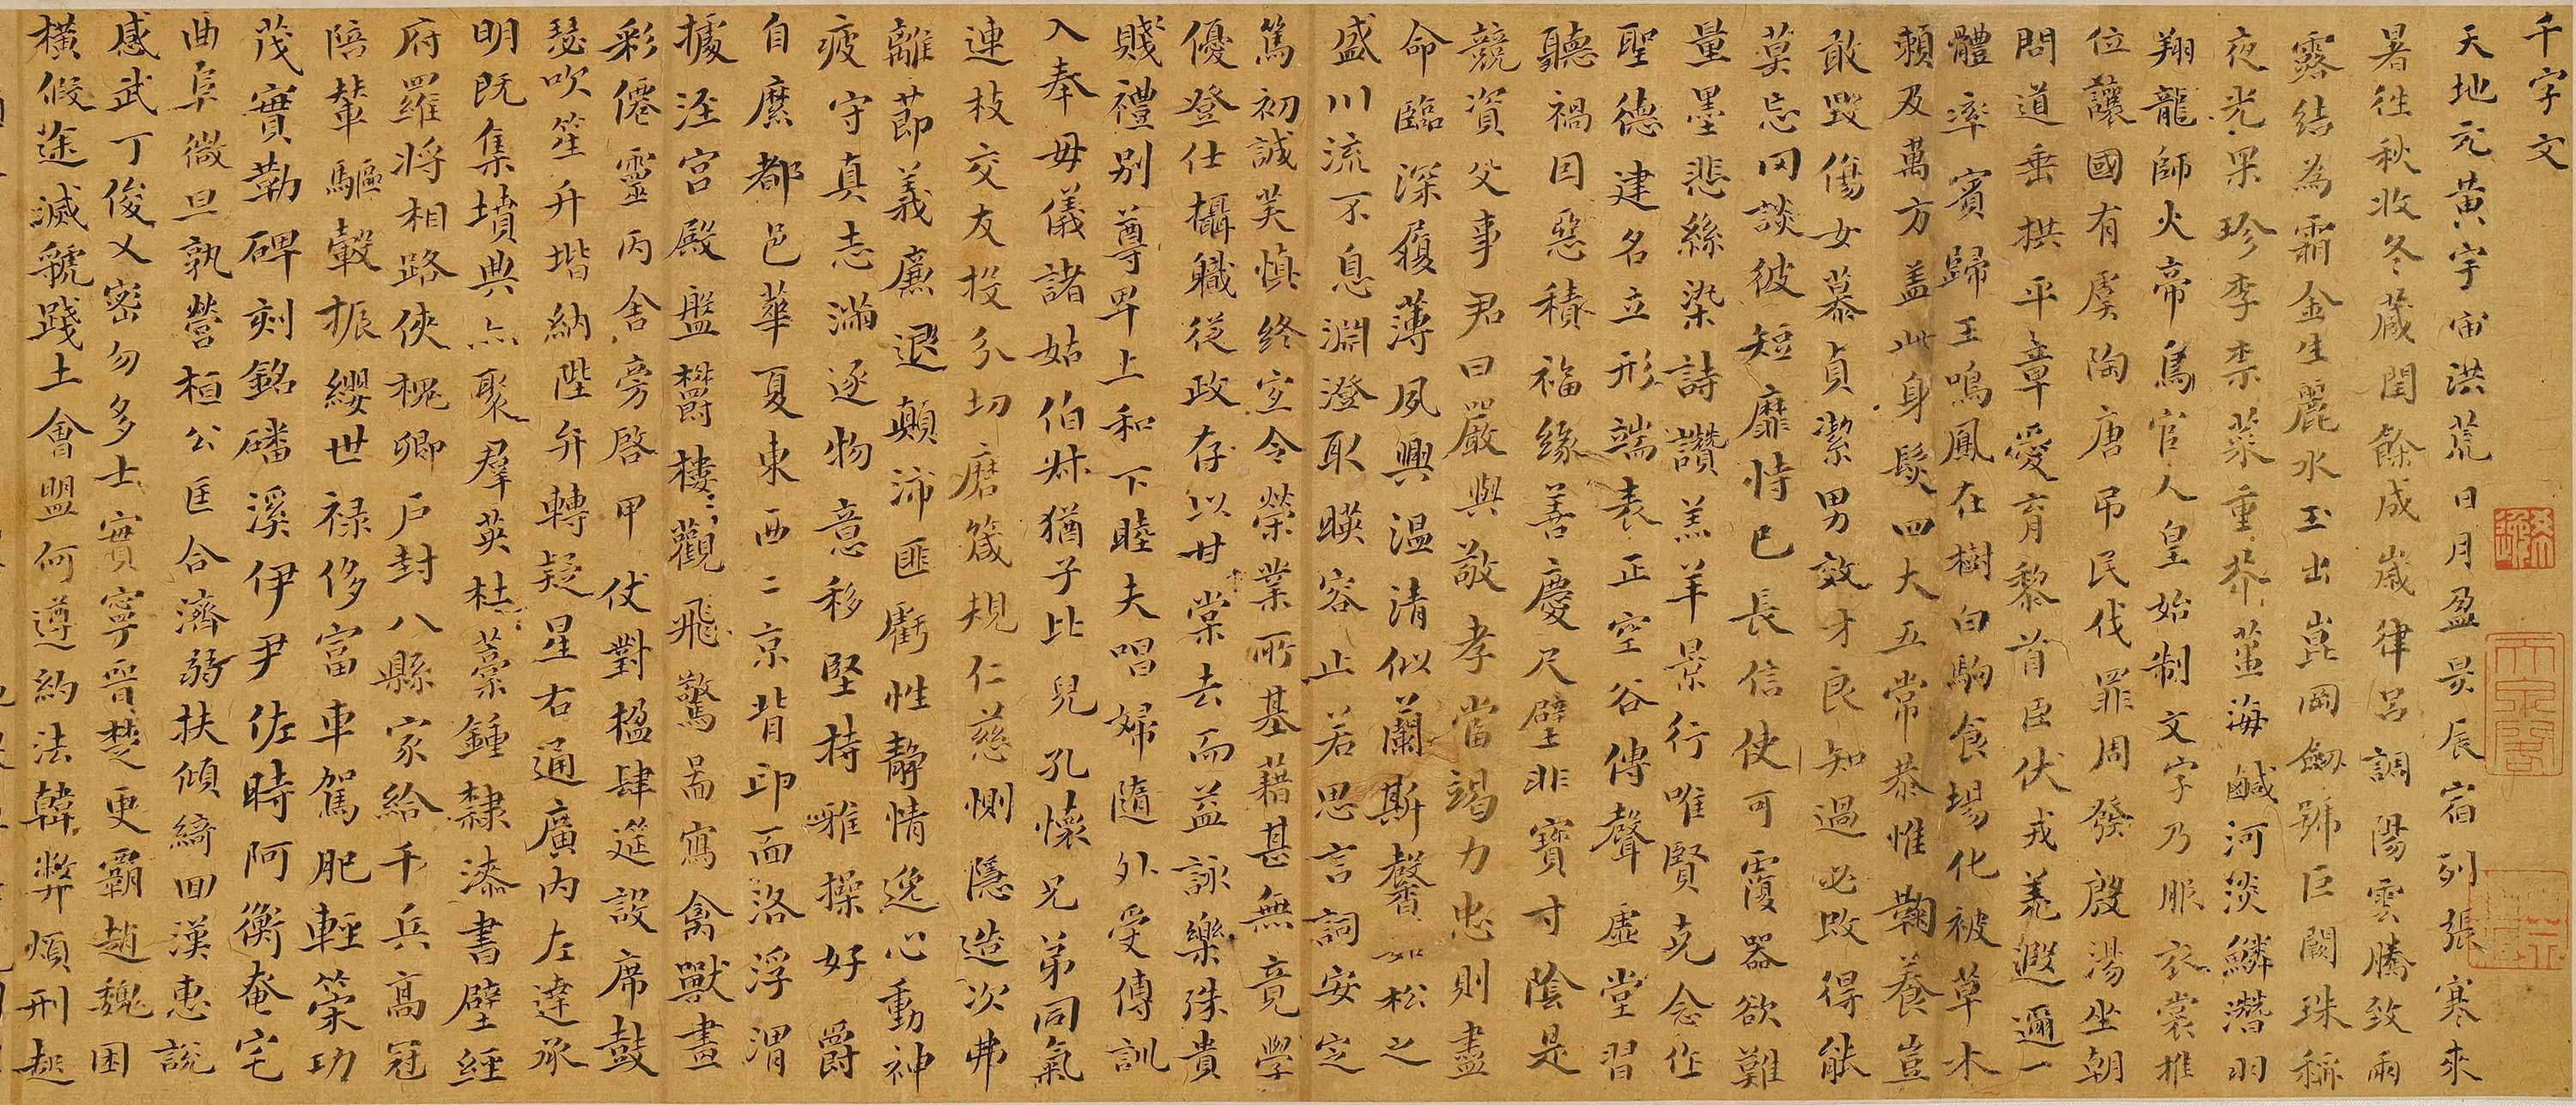 千字文
天地元黄宇宙洪荒日月盈昃辰宿列張寒來
暑徃秋收冬藏閏餘成歲律呂調陽雲騰致雨
露結為霜金生麗水玉出崑岡劔號巨闕珠稱
夜光果珍李柰菜重芥薑海鹹河淡鱗潛羽
翔龍師火帝鳥官人皇始制文字乃服衣裳推
位讓國有虞陶唐吊民伐罪周發殷湯坐朝
問道垂拱平章愛育黎首臣伏戎羌遐邇一
體率賓歸王鳴鳳在樹白駒食場化被草木
賴及萬方盖此身髮四大五常恭惟鞠養豈
敢毀傷女慕貞潔男效才良知過必改得能
莫忘罔談彼短靡恃已長信使可覆器欲難
量墨悲絲染詩讚羔羊景行唯賢克念作
聖德建名立形端表正空谷傳聲虛堂習
聽禍因惡積福緣善慶尺璧非寶寸陰是
競資父事君曰嚴與敬孝當竭力忠則盡
命臨深履薄夙興温清似蘭斯馨如松之
盛川流不息淵澄取暎容止若思言詞安定
篤初誠美慎終宜令榮業所基藉甚無竟學
優登仕攝職從政存以甘棠去而益詠樂殊貴
賤禮別尊卑上和下睦夫唱婦隨外受傅訓
入奉母儀諸姑伯叔猶子比兒孔懷兄弟同氣
連枝交友投分切磨箴規仁慈惻隱造次弗
離節義廉退顛沛匪虧性靜情逸心動神
疲守真志滿逐物意移堅持雅操好爵
自縻都邑華夏東西二京背邙面洛浮渭
據涇宮殿盤欝樓觀飛驚圖寫禽獸畫
彩僊靈丙舍旁啓甲仗對楹肆筵設席鼓
瑟吹笙升堦納陛弁轉疑星右通廣內左達承
明既集墳典亦聚羣英杜藁鍾隸漆書壁經
府羅將相路俠槐卿戶封八縣家給千兵高冠
陪輦驅轂振纓世祿侈富車駕肥輕策功
茂實勒碑刻銘磻溪伊尹佐時阿衡奄宅
曲阜微旦孰營桓公匡合濟弱扶傾綺回漢惠說
感武丁俊乂密勿多士實寧晉楚更霸趙魏困
橫假途滅虢踐土會盟何遵約法韓弊煩刑起